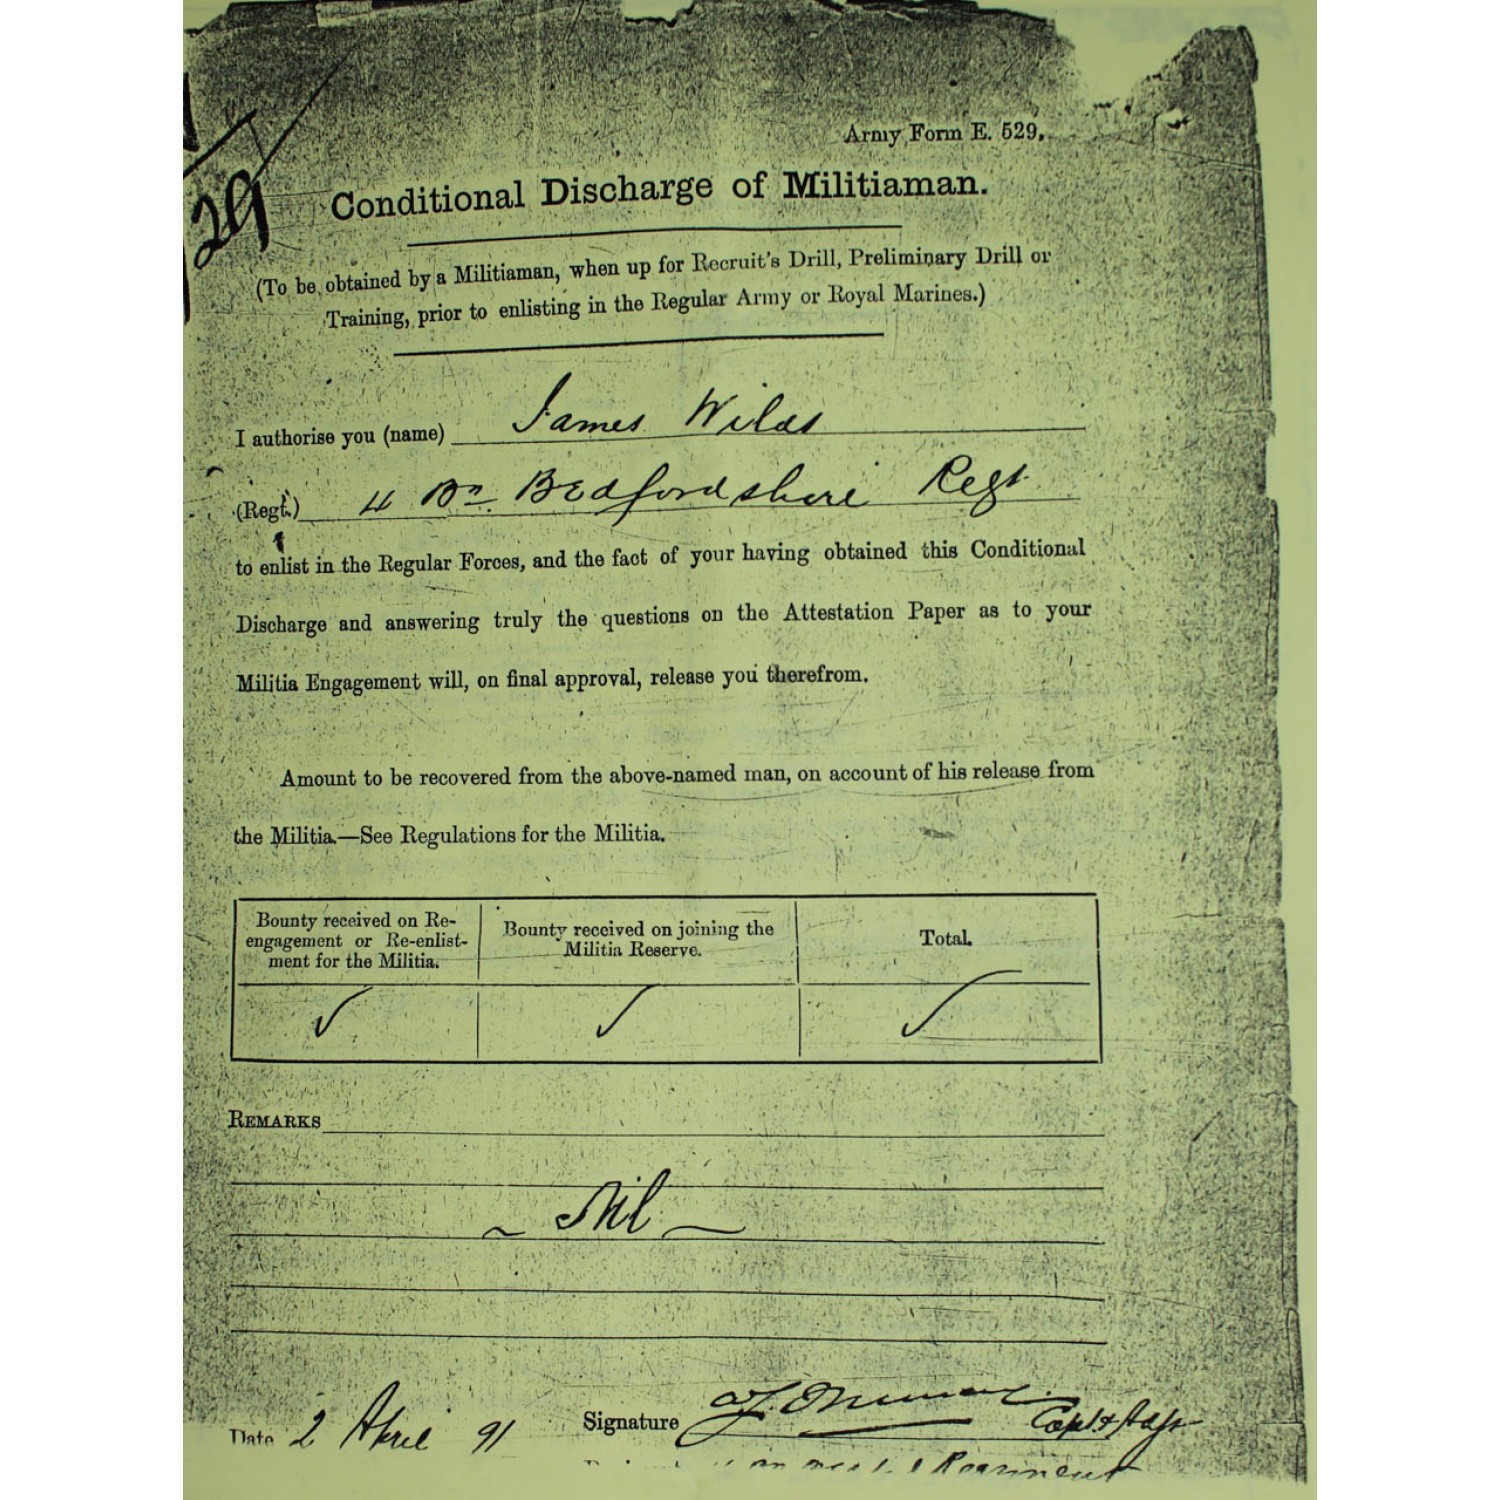 Army Form E. 529.
29
Conditional Discharge of Militiaman.
(To be obtained by a Militiaman, when up for Recruit's Drill, Preliminary Drill or
Training, prior to enlisting in the Regular Army or Royal Marines.)
I authorise you (name) James Wilds
(Regt.) 4 Bn Bedfordshire Regt
to enlist in the Regular Forces, and the fact of your having obtained this Conditional
Discharge and answering truly the questions on the Attestation Paper as to your
Militia Engagement will, on final approval, release you therefrom.
Amount to be recovered from the above-named man, on account of his release from
the Militia.—See Regulations for the Militia.
Bounty received on Re-
engagement or Re-enlist-
ment for the Militia.
Bounty received on joining the
Militia Reserve.
Total.
✓ ✓ ✓
REMARKS
~ Nil ~
Date 2 April 91 Signature Capt & Adjt
Regiment